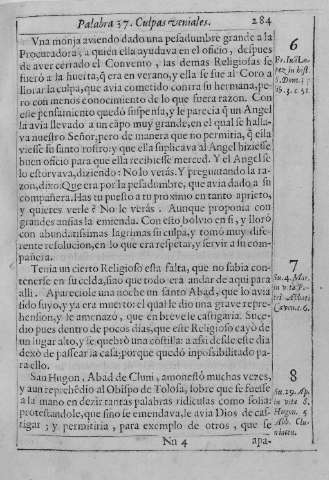 Palabra 37. Culpas veniales. 284
Vna monja aviendo dado una pesadumbre grande a la
Procuradora, a quien ella ayudava en el oficio, despues
de aver cerrado el Convento, las demas Religiosas se
fueró a la huerta, q̃ era en verano, y ella se fue al Coro a
llorar la culpa, que avia cometido contra su hermana, pe-
ro con menos conocimiento de lo que fuera razon. Con
este pensamiento quedó suspensa, y le parecia q̃ un Angel
la avia llevado a un cãpo muy grande, en el qual se halla-
va nuestro Señor, pero de manera que no permitia, q̃ ella
viesse su santo rostro; y que ella suplicava al Angel hiziesse
buen oficio para que ella recibiesse merced. Y el Angel se
lo estorvava, diziendo: No lo verás. Y preguntando la ra-
zon, dixo: Que era por la pesadumbre, que avia dado a su
compañera. Has tu puesto a tu proximo en tanto aprieto,
y quieres verle? No le verás. Aunque proponia con
grandes ansias la emienda. Con esto bolvio en si, y lloró
con abundantissimas lagrimas su culpa, y tomó muy dife-
rente resolucion, en lo que era respetar, y servir a su com-
pañera.
6
Fr. Iuã Lo-
pez, in hist.
S. Dom. p.
3. c. 51
Tenia un cierto Religioso esta falta, que no sabia con-
tenerse en su celda, sino que todo era andar de aqui para
alli. Apareciole una noche un santo Abad, que lo avia
sido suyo, y ya era muerto: el qual le dio una grave repre-
hension, y le amenazó, que en breve le castigaria. Suce-
dio pues dentro de pocos dias, que este Religioso cayó de
un lugar alto, y se quebró una costilla: a assi desde este dia
dexó de passear la casa; porque quedó impossibilitado pa-
ra ello.
7
Su. 4. Mar.
in vita Pe-
tri Abbati
Cavens. 6.
San Hugon, Abad de Cluni, amonestó muchas vezes,
y aun reprehẽdio al Obispo de Tolosa, sobre que se fuesse
a la mano en dezir tantas palabras ridiculas como solia:
protestandole, que sino se emendava, le avia Dios de cas-
tigar; y permitiria, para exemplo de otros, que se
8
Su. 29. Ap.
in vita S.
Hugon. 5
Abb. Clu-
niacen.
Nn 4 apa-